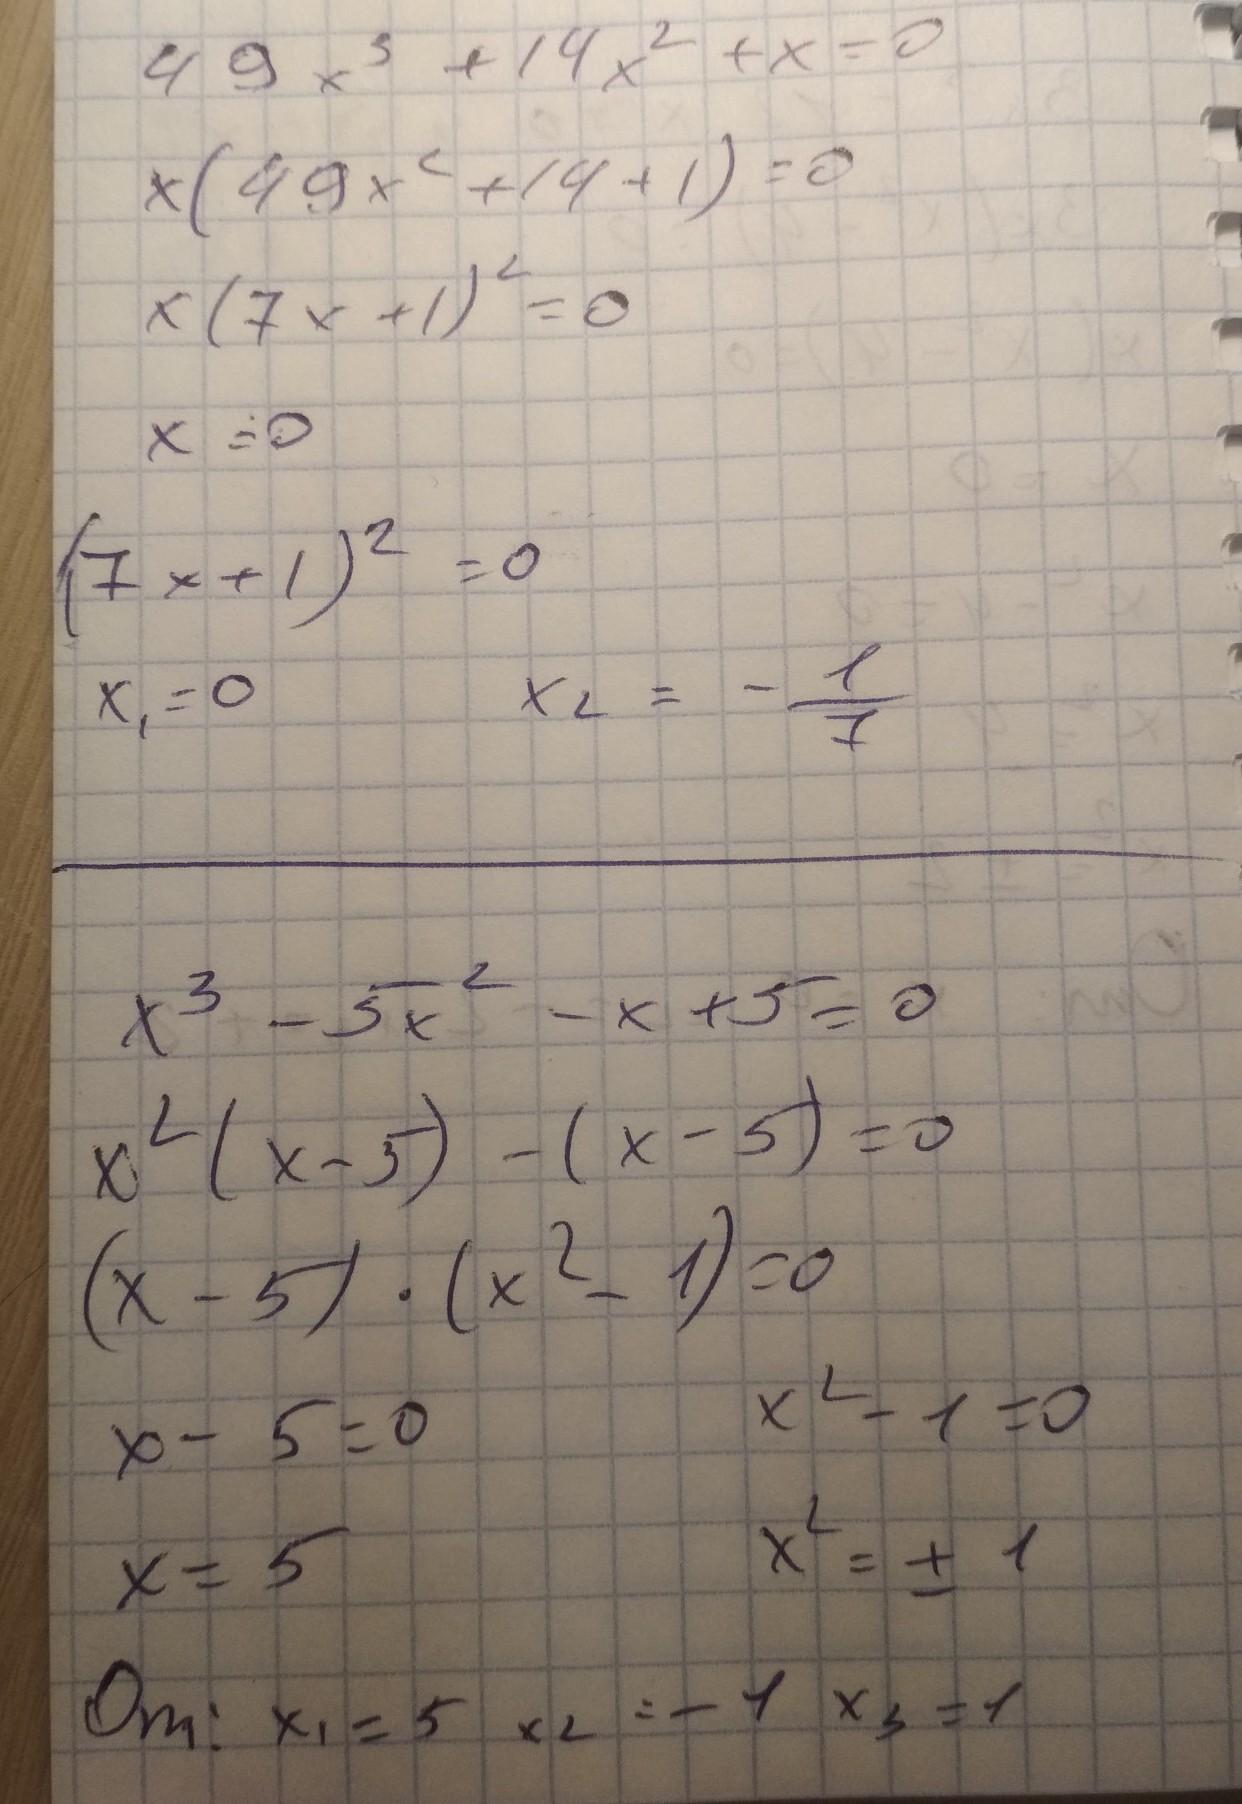 49x³ + 14x² + x = 0
x(49x² + 14 + 1) = 0
x(7x + 1)² = 0
x = 0
(7x + 1)² = 0
x₁ = 0 x₂ = -1/7
x³ - 5x² - x + 5 = 0
x²(x - 5) - (x - 5) = 0
(x - 5) · (x² - 1) = 0
x - 5 = 0 x² - 1 = 0
x = 5 x² = ± 1
От: x₁ = 5 x₂ = -1 x₃ = 1